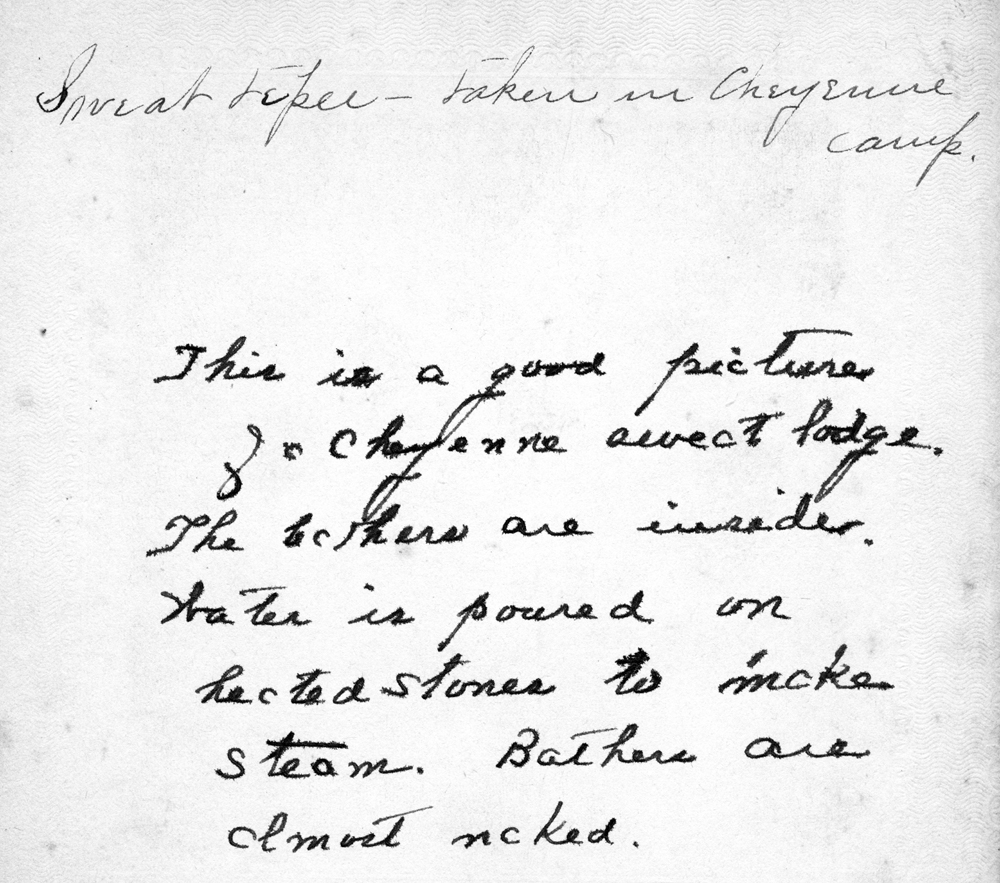 Sweat tepee – taken in Cheyenne
camp.
This is a good picture
of a Cheyenne sweat lodge.
The bathers are inside.
Water is poured on
heated stones to make
steam. Bathers are
almost naked.